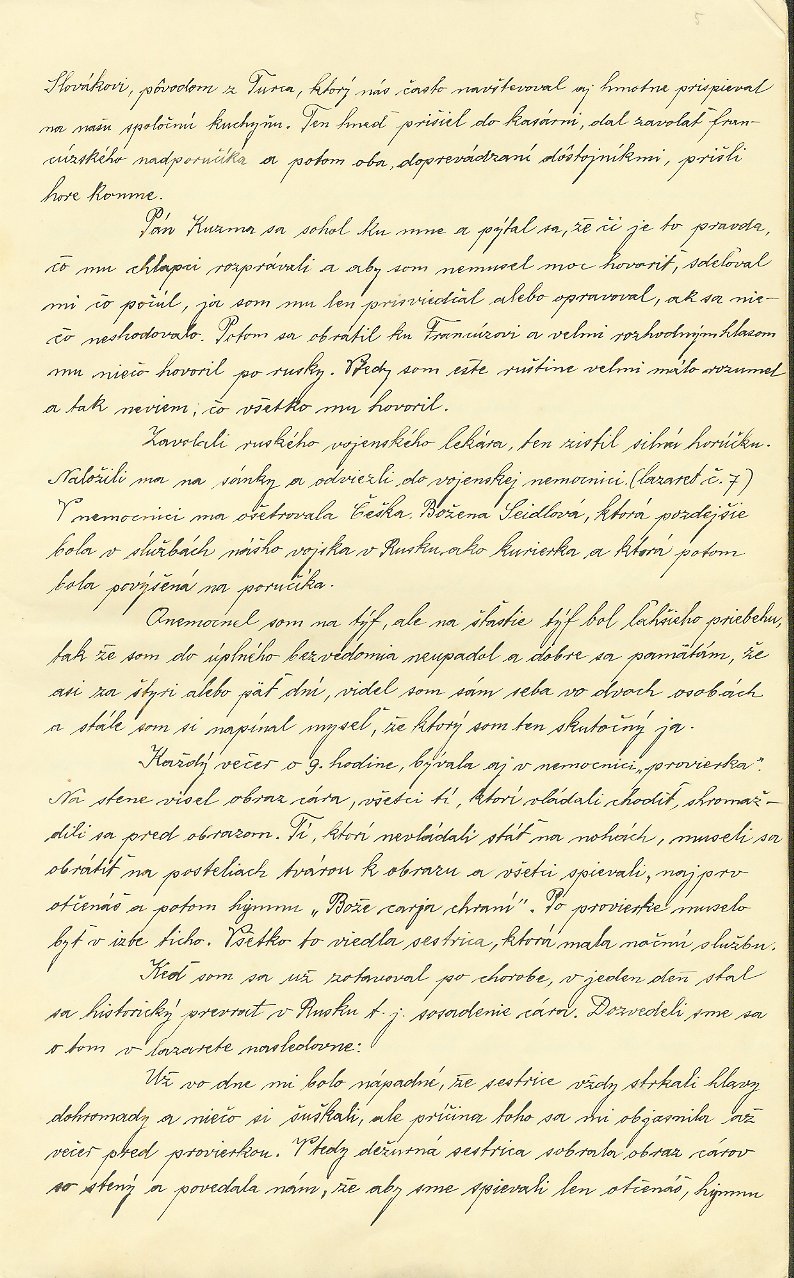 5
Slovákovi, pôvodom z Turca, ktorý nás často navštevoval aj hmotne prispieval
na našu spoločnú kuchyňu. Ten hneď prišiel do kasární, dal zavolať fran-
cúzského nadporučíka a potom oba, doprevádzaní dôstojníkmi, prišli
hore komne.
Pán Kuzma sa sohol ku mne a pýtal sa, že či je to pravda,
čo mu chlapci rozprávali a aby som nemusel moc hovoriť, sdeľoval
mi čo počul, ja som mu len prisviedčal alebo opravoval, ak sa nie-
čo neshodovalo. Potom sa obrátil ku Francúzovi a velmi rozhodným hlasom
mu niečo hovoril po rusky. Vtedy som ešte ruštine velmi málo rozumel
a tak neviem, čo všetko mu hovoril.
Zavolali ruského vojenského lekára, ten zistil silnú horúčku.
Naložili ma na sánky a odviezli do vojenskej nemocnici. (lazaret č. 7)
V nemocnici ma ošetrovala Češka Božena Seidlová, ktorá pozdejšie
bola v službách nášho vojska v Rusku ako kurierka a ktorá potom
bola povýšená na poručíka.
Onemocnel som na týf, ale na šťastie týf bol ľahšieho priebehu,
tak že som do úplného bezvedomia neupadol a dobre sa pamätám, že
asi za štyri alebo päť dní, videl som sám seba vo dvoch osobách
a stále som si napínal myseľ, že ktorý som ten skutočný ja.
Každý večer o 9. hodine, bývala aj v nemocnici „provierka".
Na stene visel obraz cára, všetci tí, ktorí vládali chodiť, shromaž-
dili sa pred obrazom. Tí, ktorí nevládali stáť na nohách, museli sa
obrátiť na posteliach tvárou k obrazu a všetci spievali, najprv
otčenáš a potom hýmnu „Bože carja chraní". Po provierke muselo
byť v izbe ticho. Všetko to viedla sestrica, ktorá mala nočnú službu.
Keď som sa už zotavoval po chorobe, v jeden deň stal
sa historický prevrat v Rusku t. j. sosadenie cára. Dozvedeli sme sa
o tom v lazarete nasledovne:
Už vo dne mi bolo nápadné, že sestrice vždy strkali hlavy
dohromady a niečo si šuškali, ale príčina toho sa mi objasnila až
večer pred provierkou. Vtedy dežurná sestrica sobrala obraz cárov
so steny a povedala nám, že aby sme spievali len otčenáš, hýmnu